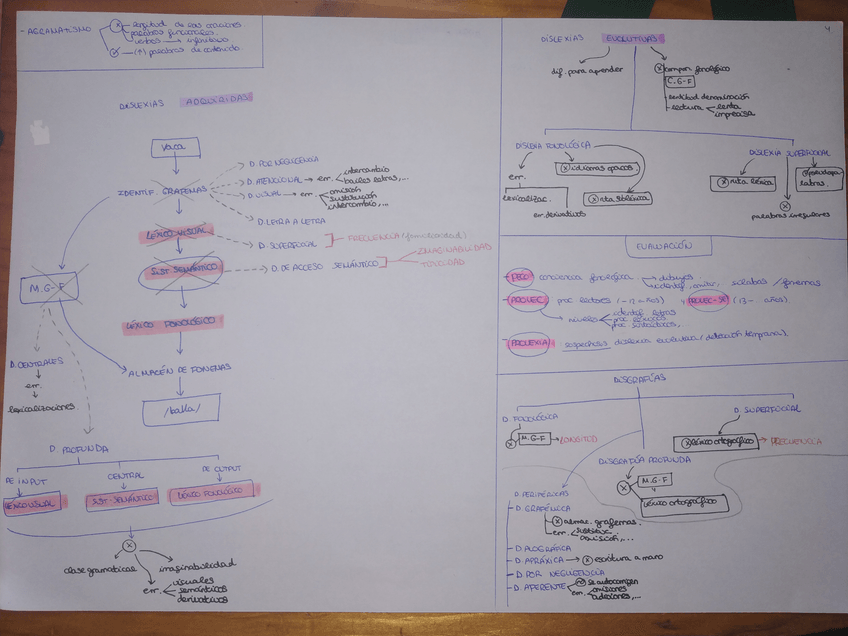 - AGRAMATISMO
longitud de las oraciones
palabras funcionales
verbos → infinitivo
(↑) palabras de contenido
DISLEXIAS ADQUIRIDAS
vaca
IDENTIF. GRAFEMAS
D. POR NEGLIGENCIA
D. ATENCIONAL → err.
intercambio
D. VISUAL → err.
omisión
sustitución
intercambio, ...
D. LETRA A LETRA
LÉXICO VISUAL
D. SUPERFICIAL
FRECUENCIA (familiaridad)
SIST. SEMÁNTICO
D. DE ACCESO SEMÁNTICO
IMAGINABILIDAD
M.G-F
LÉXICO FONOLÓGICO
D. CENTRALES
err.
lexicalizaciones
ALMACÉN DE FONEMAS
D. PROFUNDA
DE INPUT
CENTRAL
DE OUTPUT
LÉXICO VISUAL
SIST. SEMÁNTICO
LÉXICO FONOLÓGICO
X
clase gramatical
imaginabilidad
err.
visuales
semánticos
derivativos
4
DISLEXIAS EVOLUTIVAS
dif. para aprender
X
C.G-F
lentitud denominación
lectura
lenta
imprecisa
DISLEXIA FONOLÓGICA
err.
lexicalizac.
err. derivativos
X idiomas opacos
X ruta subléxica
DISLEXIA SUPERFICIAL
X ruta léxica
X
palabras irregulares
pseudopa-
labras.
EVALUACIÓN
conciencia fonológica → dibujos.
identif, omitir, ... sílabas / fonemas
PROLEC
proc. lectores (-12 años)
PROLEC-SE (13- años)
niveles
identif. letras
proc. léxicos
proc. sintácticos,
PROLEXIA
sospechosos dislexia evolutiva (detección temprana).
DISGRAFÍAS
D. FONOLÓGICA
X M.G-F → LONGITUD
D. SUPERFICIAL
X léxico ortográfico → FRECUENCIA
DISGRAFÍA PROFUNDA
X
M.G-F
y
léxico ortográfico
D. PERIFÉRICAS
- D. GRAFÉMICA
X almac. grafemas.
err.
sustituc.
omisión, ...
- D. ALOGRÁFICA
- D. APRÁXICA → X escritura a mano
- D. POR NEGLIGENCIA
- D. AFERENTE
no se autocorrigen
err.
omisiones
adiciones, ...